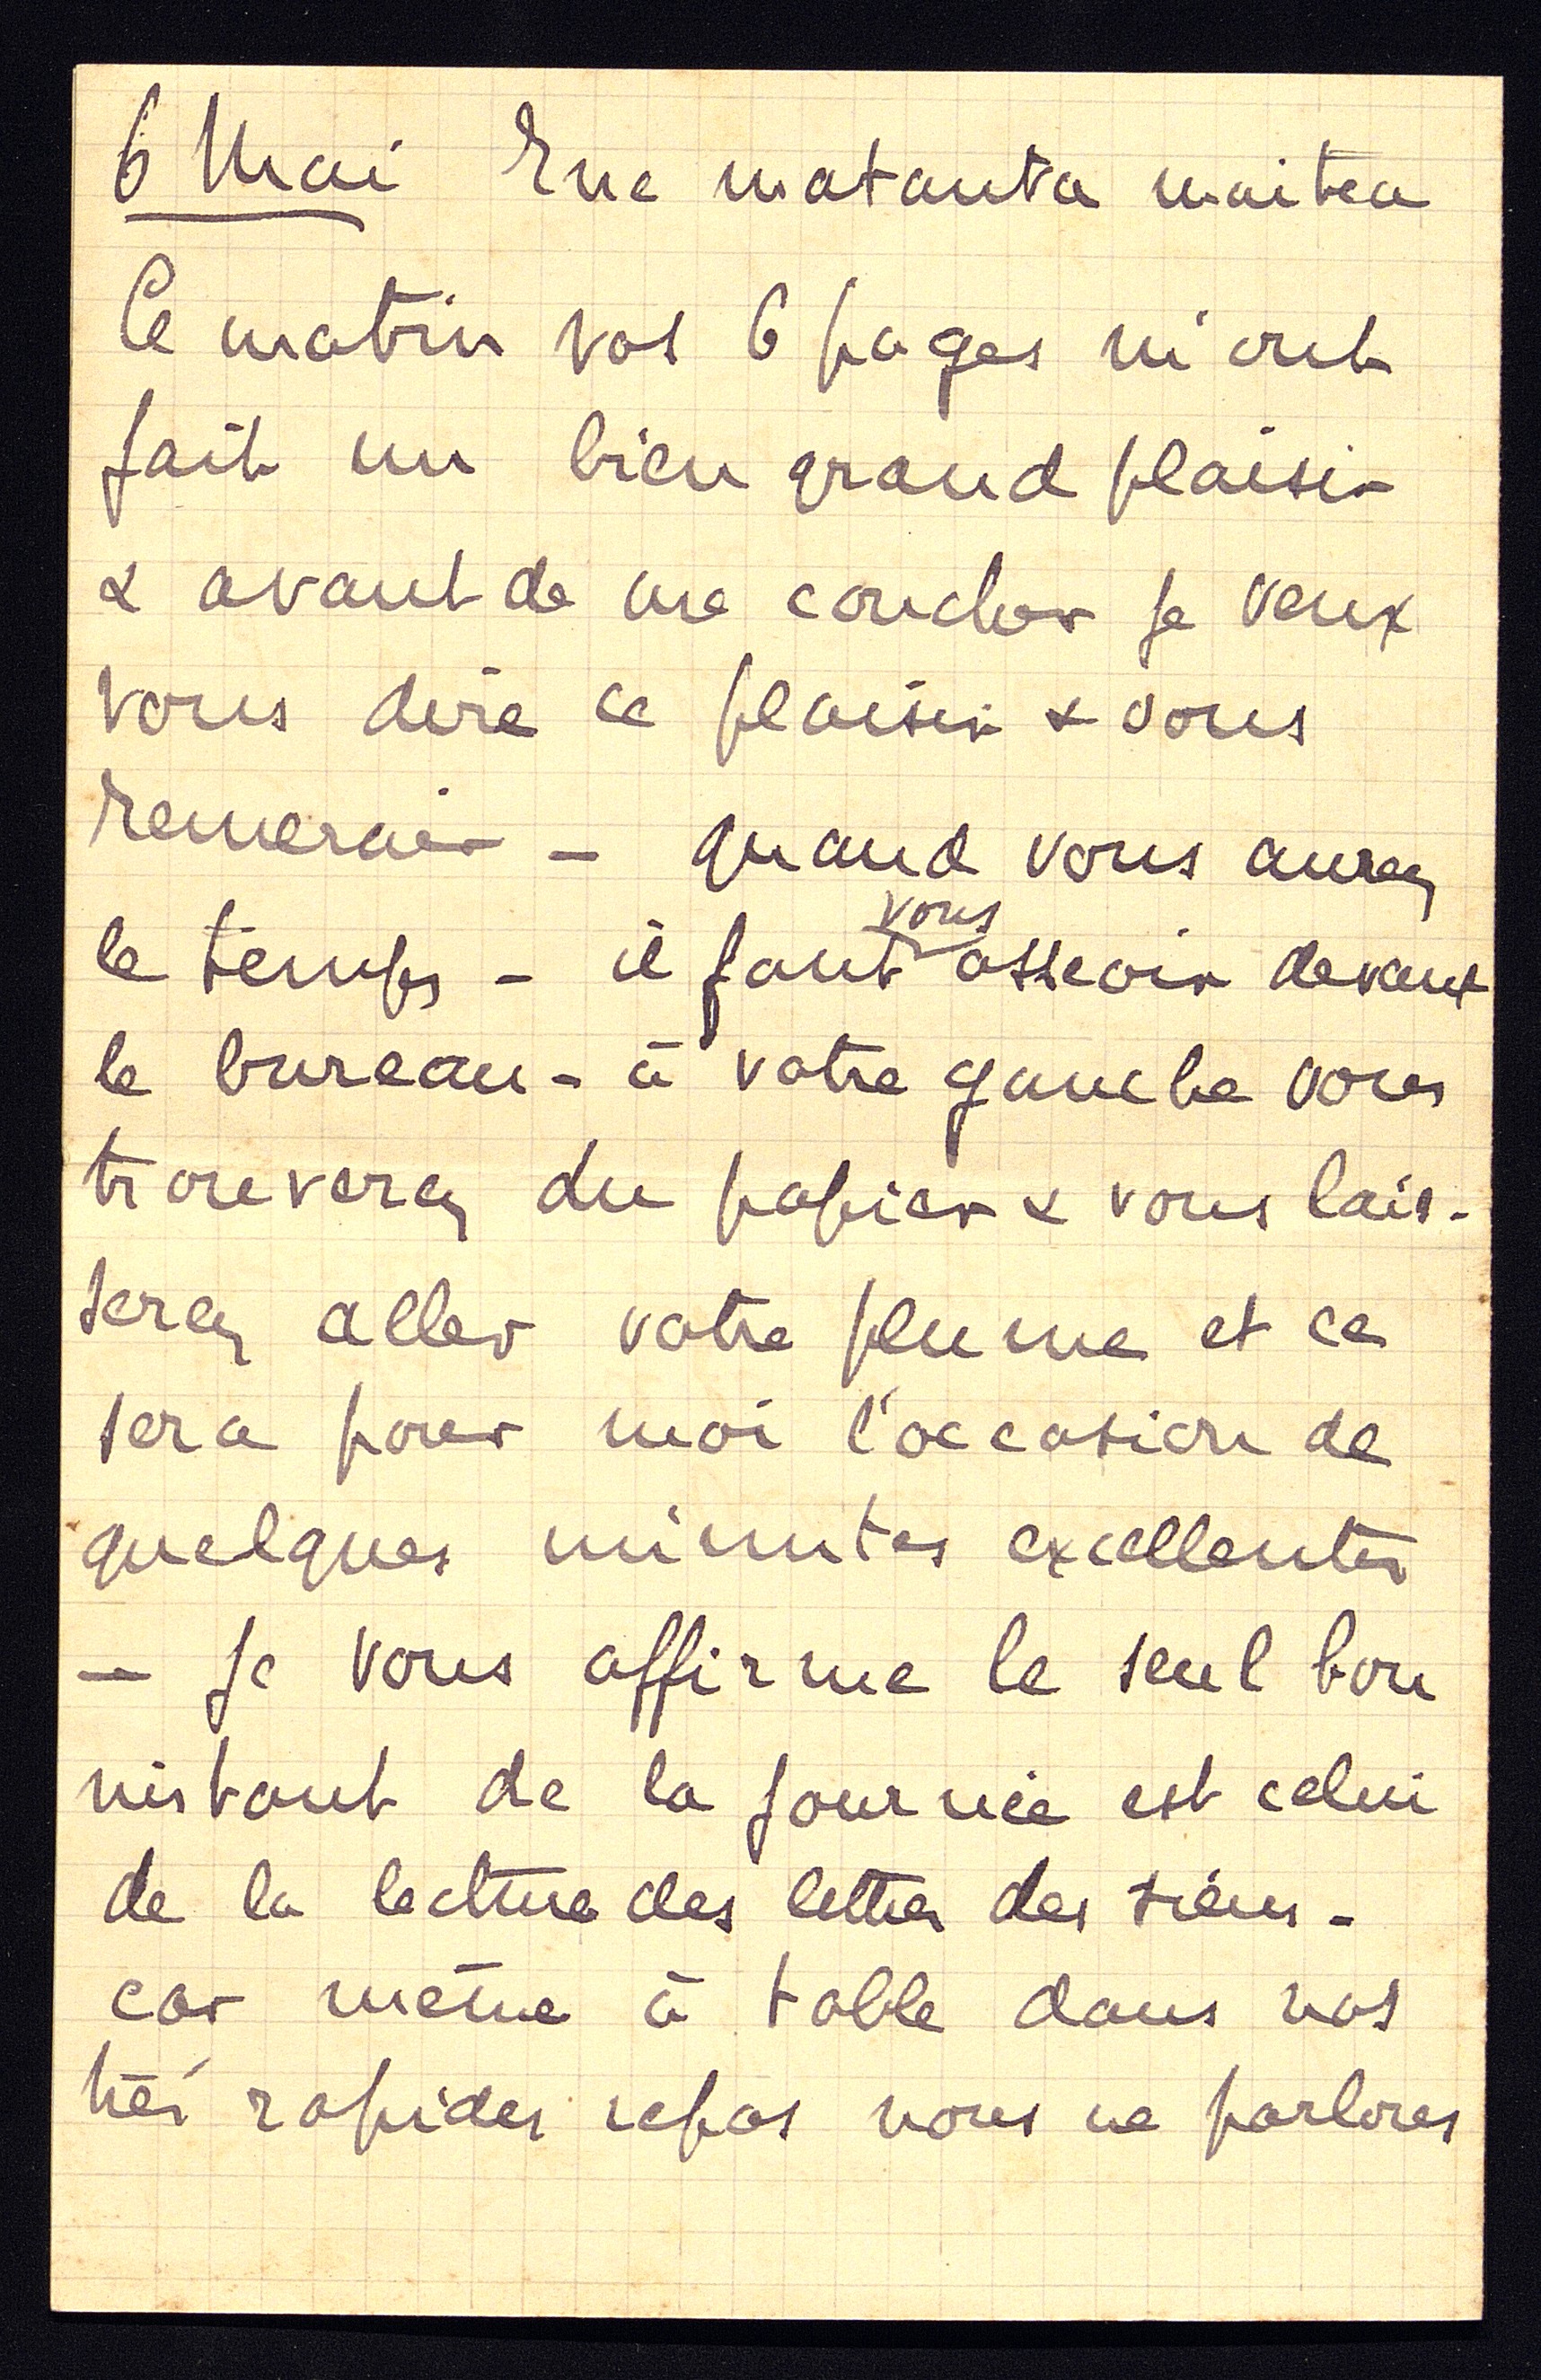 6 Mai Ene matanta maitea
Ce matin vos 6 pages m'ont
fait un bien grand plaisir
& avant de me coucher je veux
vous dire ce plaisir & vous
remercier - quand vous aurez
le temps - il faut vous asseoir devant
le bureau - à votre gauche vous
trouverez du papier & vous lais-
serez aller votre plume et ce
sera pour moi l'occasion de
quelques minutes excellentes
- je vous affirme le seul bon
instant de la journée est celui
de la lecture des lettres des siens -
car même à table dans nos
très rapides repas nous ne parlons